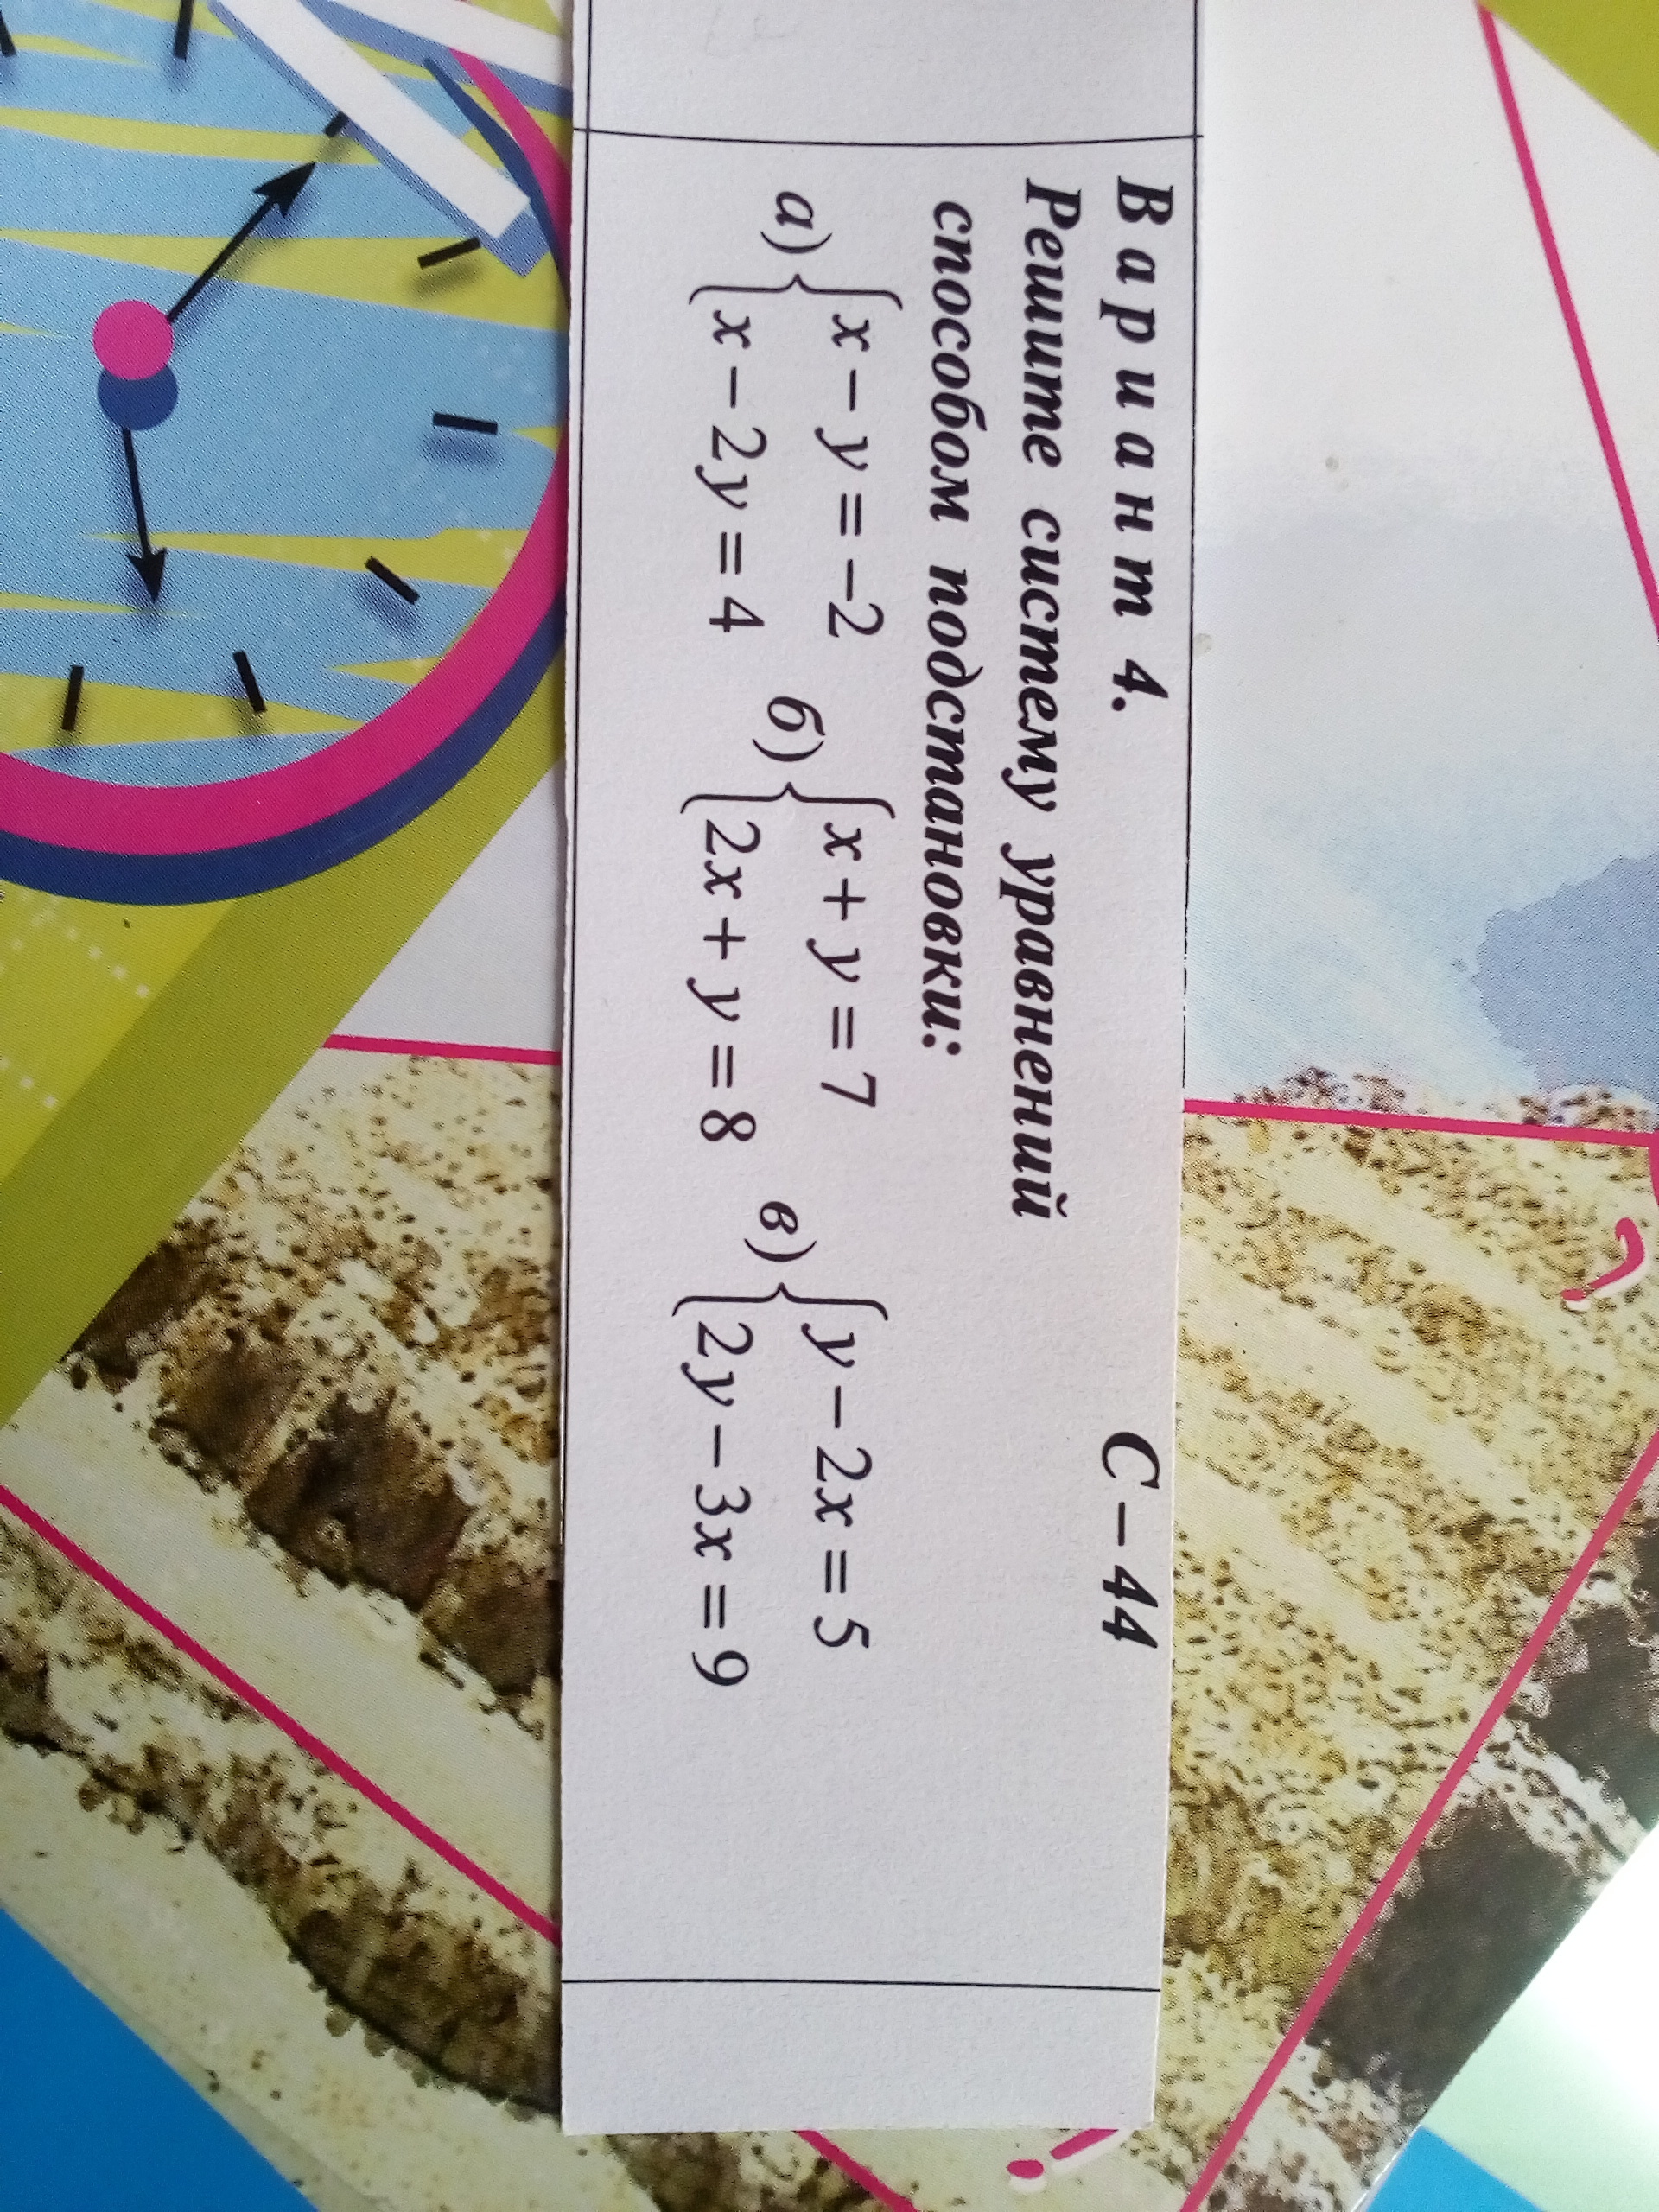 Вариант 4. С – 44
Решите систему уравнений
способом подстановки:
а) { x – y = –2 б) { x + y = 7 в) { y – 2x = 5
x – 2y = 4 2x + y = 8 2y – 3x = 9